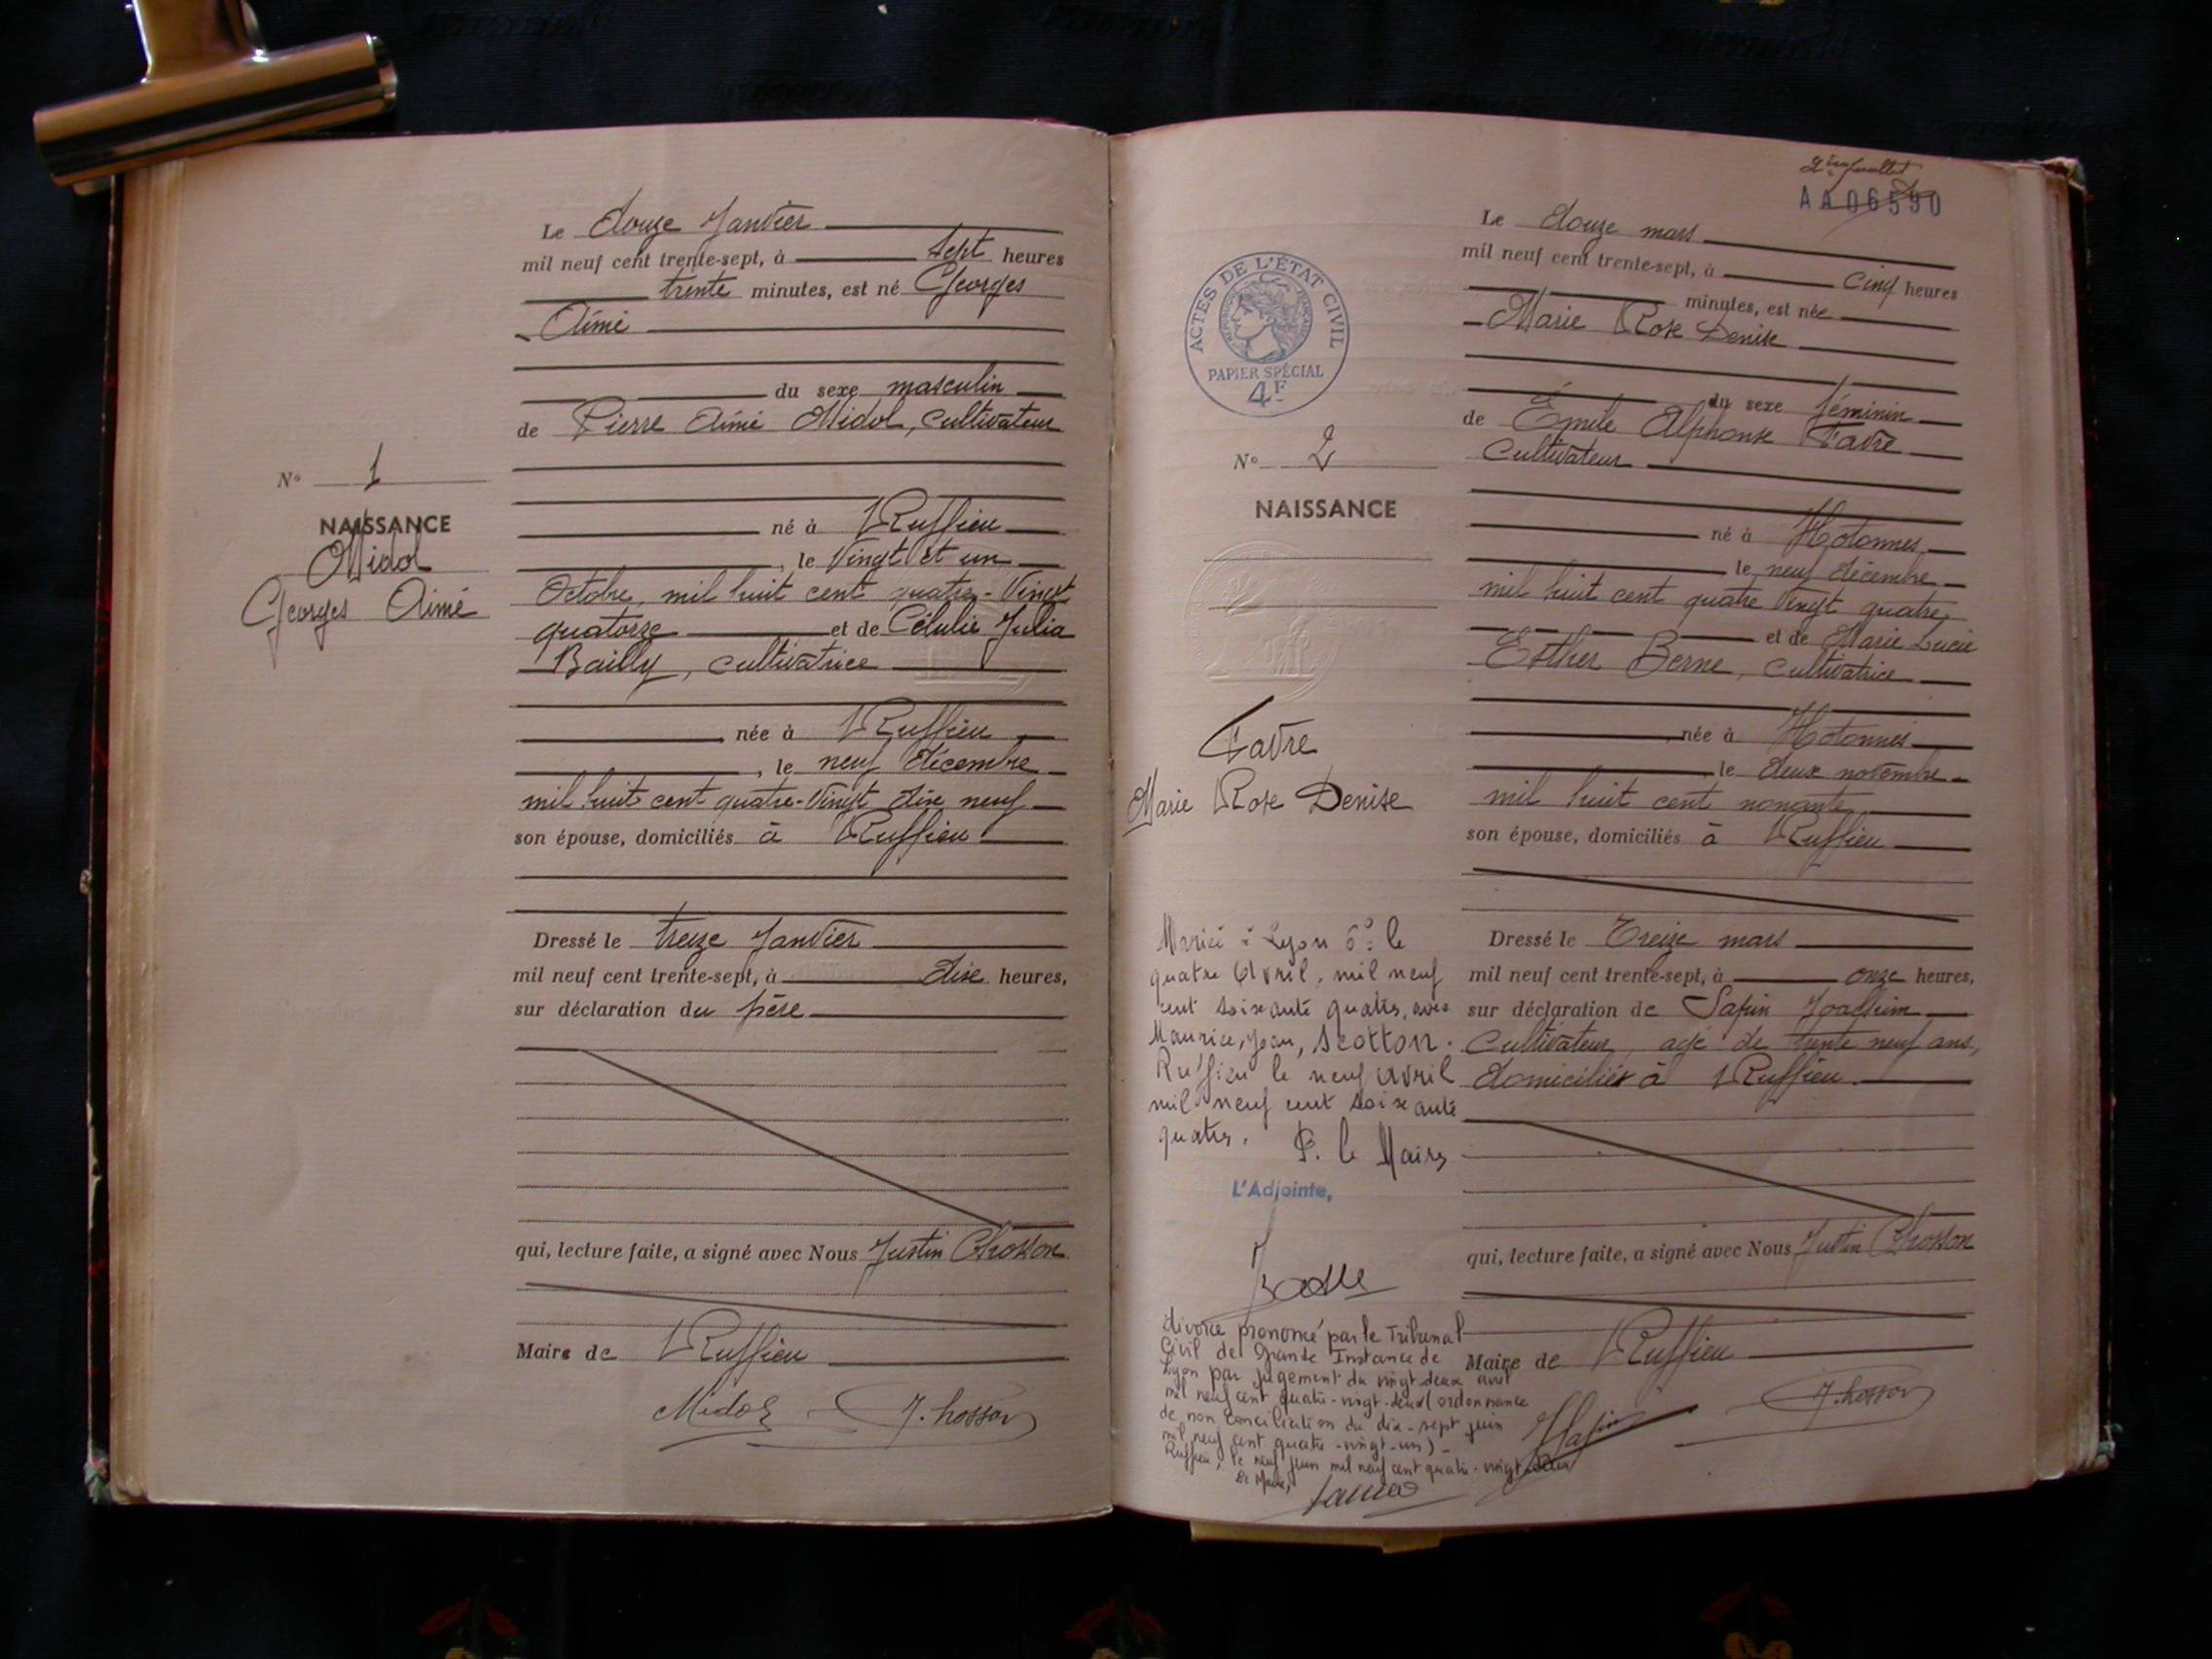 Le douze Janvier
mil neuf cent trente-sept, à sept heures
trente minutes, est né Georges
Aimé
du sexe masculin
de Pierre Aimé Midol, cultivateur
N° 1
NAISSANCE
Midol
Georges Aimé
né à Ruffieu
, le Vingt et un
Octobre, mil huit cent quatre-Vingt
quatorze et de Célulie Julia
Bailly, cultivatrice
née à Ruffieu
, le neuf décembre
mil huit cent quatre-Vingt dix neuf
son épouse, domiciliés à Ruffieu
Dressé le treize Janvier
mil neuf cent trente-sept, à dix heures,
sur déclaration du père
qui, lecture faite, a signé avec Nous Justin Chosson
Maire de Ruffieu
Midol J. Chosson
2ème feuillet
AA06590
Le douze mars
mil neuf cent trente-sept, à cinq heures
minutes, est née
Marie Rose Denise
du sexe féminin
de Émile Alphonse Favre
Cultivateur
ACTES DE L'ÉTAT CIVIL
RÉPUBLIQUE FRANÇAISE
PAPIER SPÉCIAL
4F
N° 2
NAISSANCE
Favre
Marie Rose Denise
né à Hotonnes
le neuf décembre
mil huit cent quatre Vingt quatre,
et de Marie Lucie
Esther Berne, cultivatrice
née à Hotonnes
le deux novembre
mil huit cent nonante
son épouse, domiciliés à Ruffieu
Dressé le Treize mars
mil neuf cent trente-sept, à onze heures,
sur déclaration de Sapin Joachim
Cultivateur, age de trente neuf ans,
domiciliés à Ruffieu
qui, lecture faite, a signé avec Nous Justin Chosson
Maire de Ruffieu
J. Chosson
Marié à Lyon 6e le
quatre Avril, mil neuf
cent soixante quatre, avec
Maurice, Jean, Scotton.
Ruffieu le neuf avril
mil neuf cent soixante
quatre. P. le Maire
L'Adjointe,
divorce prononcé par le Tribunal
Civil de Grande Instance de
Lyon par jugement du vingt-deux avril
mil neuf cent quatre-vingt-deux (ordonnance
de non conciliation du dix-sept juin
mil neuf cent quatre-vingt-un)-
Ruffieu, le neuf juin mil neuf cent quatre-vingt deux
Le Maire,